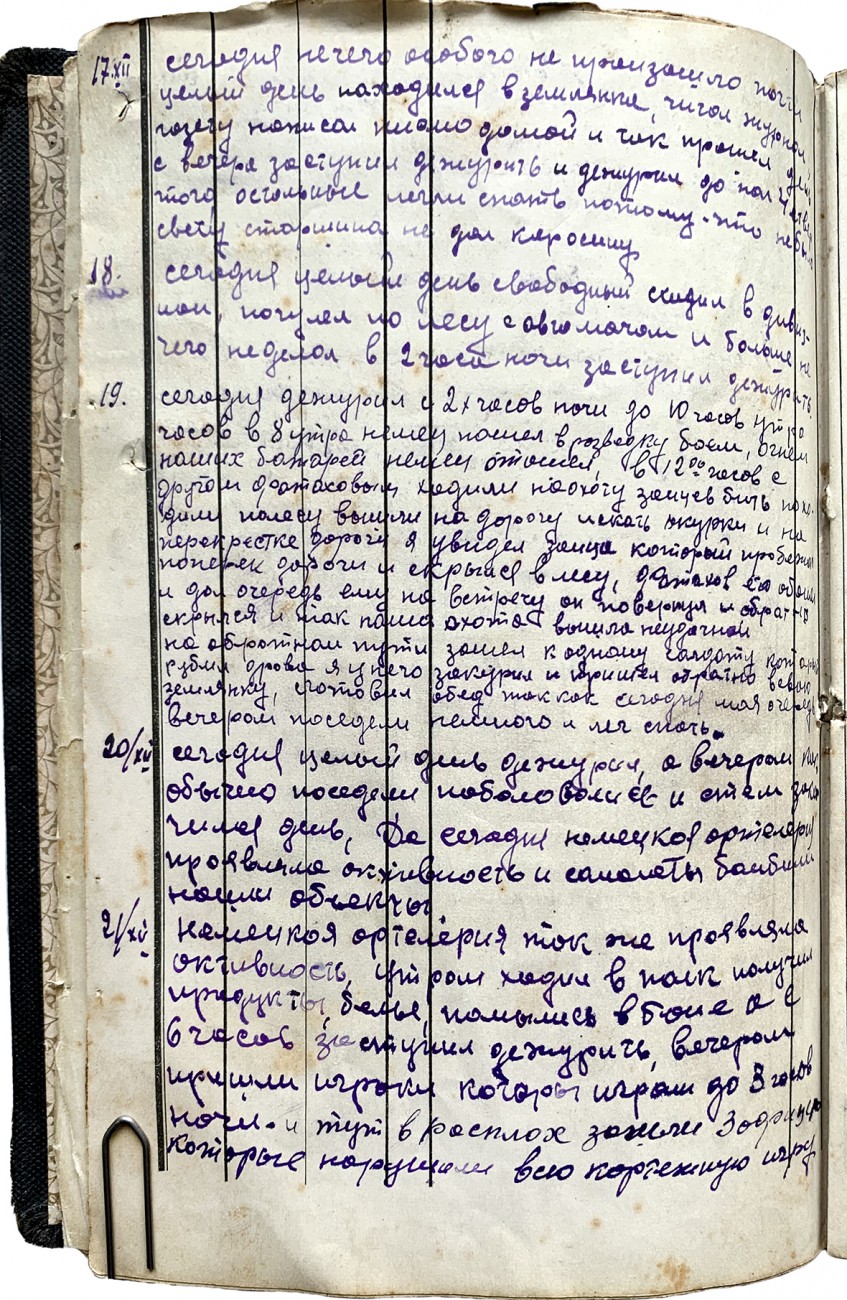 17.XII сегодня нечего особого не произошло почти
целый день находился в землянке, читал журнал
газету написал письмо домой и так прошел день
с вечера заступил дежурить и дежурил до пол
того остальные легли спать потому-что небыло
свету старшина не дал каросину
18. сегодня целый день свободный сходил в дивиз-
ион, погулял по лесу с автоматом и больше не
чего неделал в 2 часа ночи заступил дежурить
19. сегодня дежурил с 2х часов ночи до 10 часов утра
часов в 8 утра немец пошел в розведку боем, огнем
наших батарей немец отошел, в 12 00 часов с
другом фотаховым ходили наохоту зайцев бить похо-
дили полесу вышли на дорогу искать жкурки и на
перекрестке дороги я увидел зайца который пробежал
поперек дороги и скрылся в лесу,
и дал очередь ему на встречу он повернул и обратно
скрылся и так наша охота вышла неудачной
на обратном пути зашел к одному салдату который
рубил дрова я у него закурил и пришел обратно всвою
землянку, сготовил обед так как сегодня моя очередь
вечером поседели немного и лег спать.
20/XII сегодня целый день дежурил, а вечером как
обычно поседели побаловались и стем закон
чился день, Да сегодня немецкая артелерия
проявляла активность и самолеты бомбили
нашли объекты
21/XII немецкая артелерия так же проявляла
активность, утром ходил в полк получил
продукты, белье, помылись в бане а с
6 часов заступил дежурить, вечером
пришли игроки которы играли до 3 часов
ночи. и тут в расплох зашли 3 офицера
которые нарушили всю картежную игру